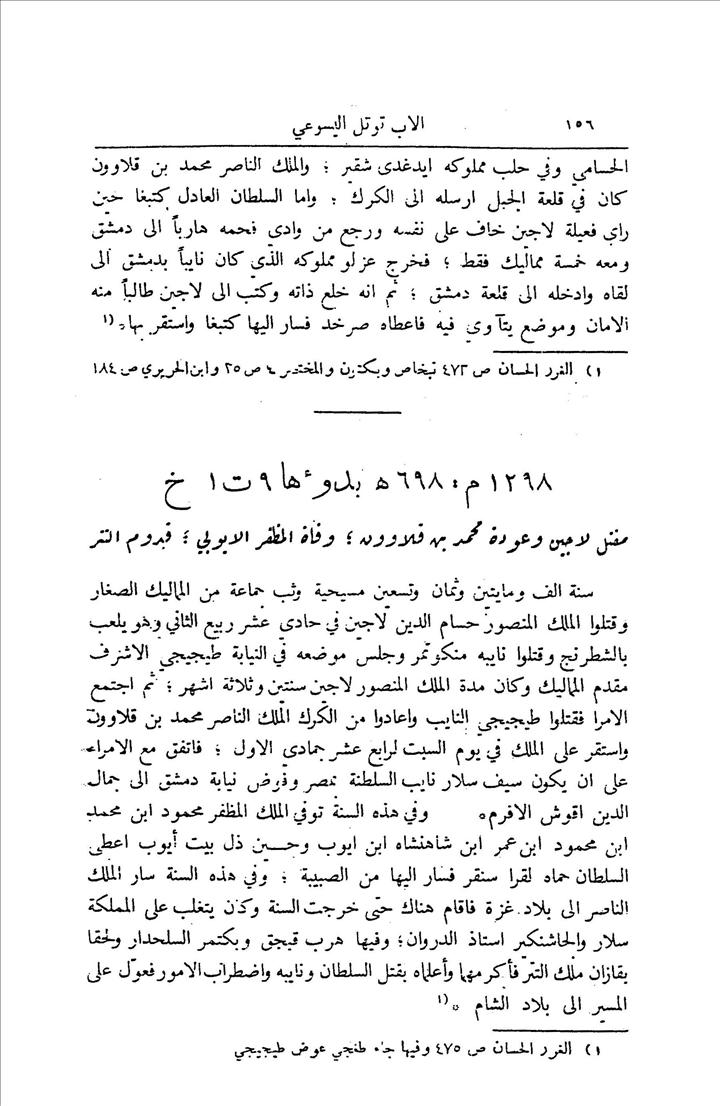 ١٥٦ الاب توتل اليسوعي
الحسامي وفي حلب مملوكه ايدغدى شقير ؛ والملك الناصر محمد بن قلاوون
كان في قلعة الجبل ارسله الى الكرك ؛ واما السلطان العادل كتبغا حين
راى فعيلة لاجين خاف على نفسه ورجع من وادي فحمه هارباً الى دمشق
ومعه خمسة مماليك فقط ؛ فخرج عزلو مملوكه الذي كان نايباً بدمشق الى
لقاه وادخله الى قلعة دمشق ؛ ثم انه خلع ذاته وكتب الى لاجين طالباً منه
الامان وموضع يتآوي فيه فاعطاه صرخد فسار اليها كتبغا واستقر بها ٭ (١
١) الغرر الحسان ص ٤٧٣ تبخاص وبكتمرن والمختصر ٤ ص ٣٥ وابن الحريري ص ١٨٤
١٢٩٨ م : ٦٩٨ ھ بدوءها ٩ ت ١ خ
مقتل لاجين وعودة محمد بن قلاوون ؛ وفاة المظفر الايوبي ؛ قدوم التتر
سنة الف ومايتين وثمان وتسعين مسيحية وثب جماعة من المماليك الصغار
وقتلوا الملك المنصور حسام الدين لاجين في حادى عشر ربيع الثاني وهو يلعب
بالشطرنج وقتلوا نايبه منكوتمر وجلس موضعه في النيابة طيجيجي الاشرف
مقدم المماليك وكان مدة الملك المنصور لاجين سنتين وثلاثة اشهر ؛ ثم اجتمع
الامرا فقتلوا طيجيجي النايب واعادوا من الكرك الملك الناصر محمد بن قلاوون
واستقر على الملك في يوم السبت لرابع عشر جمادى الاول ؛ فاتفق مع الامراء
على ان يكون سيف سلار نايب السلطنة بمصر وفوض نيابة دمشق الى جمال
الدين اقوش الافرم ٭ وفي هذه السنة توفي الملك المظفر محمود ابن محمد
ابن محمود ابن عمر ابن شاهنشاه ابن ايوب وحسين ذل بيت أيوب اعطى
السلطان حماه لقرا سنقر فسار اليها من الصبيبة ؛ وفي هذه السنة سار الملك
الناصر الى بلاد غزة فاقام هناك حتى خرجت السنة وكان يتغلب على المملكة
سلار والجاشنكير استاذ الدروان ؛ وفيها هرب قبجق وبكتمر السلحدار ولحقا
بقازان ملك التتر فأكرمهما وأعلماه بقتل السلطان ونايبه واضطراب الامور فعوّل على
المسير الى بلاد الشام ٭ (١
١) الغرر الحسان ص ٤٧٥ وفيها جاء طغجي عوض طيجيجي